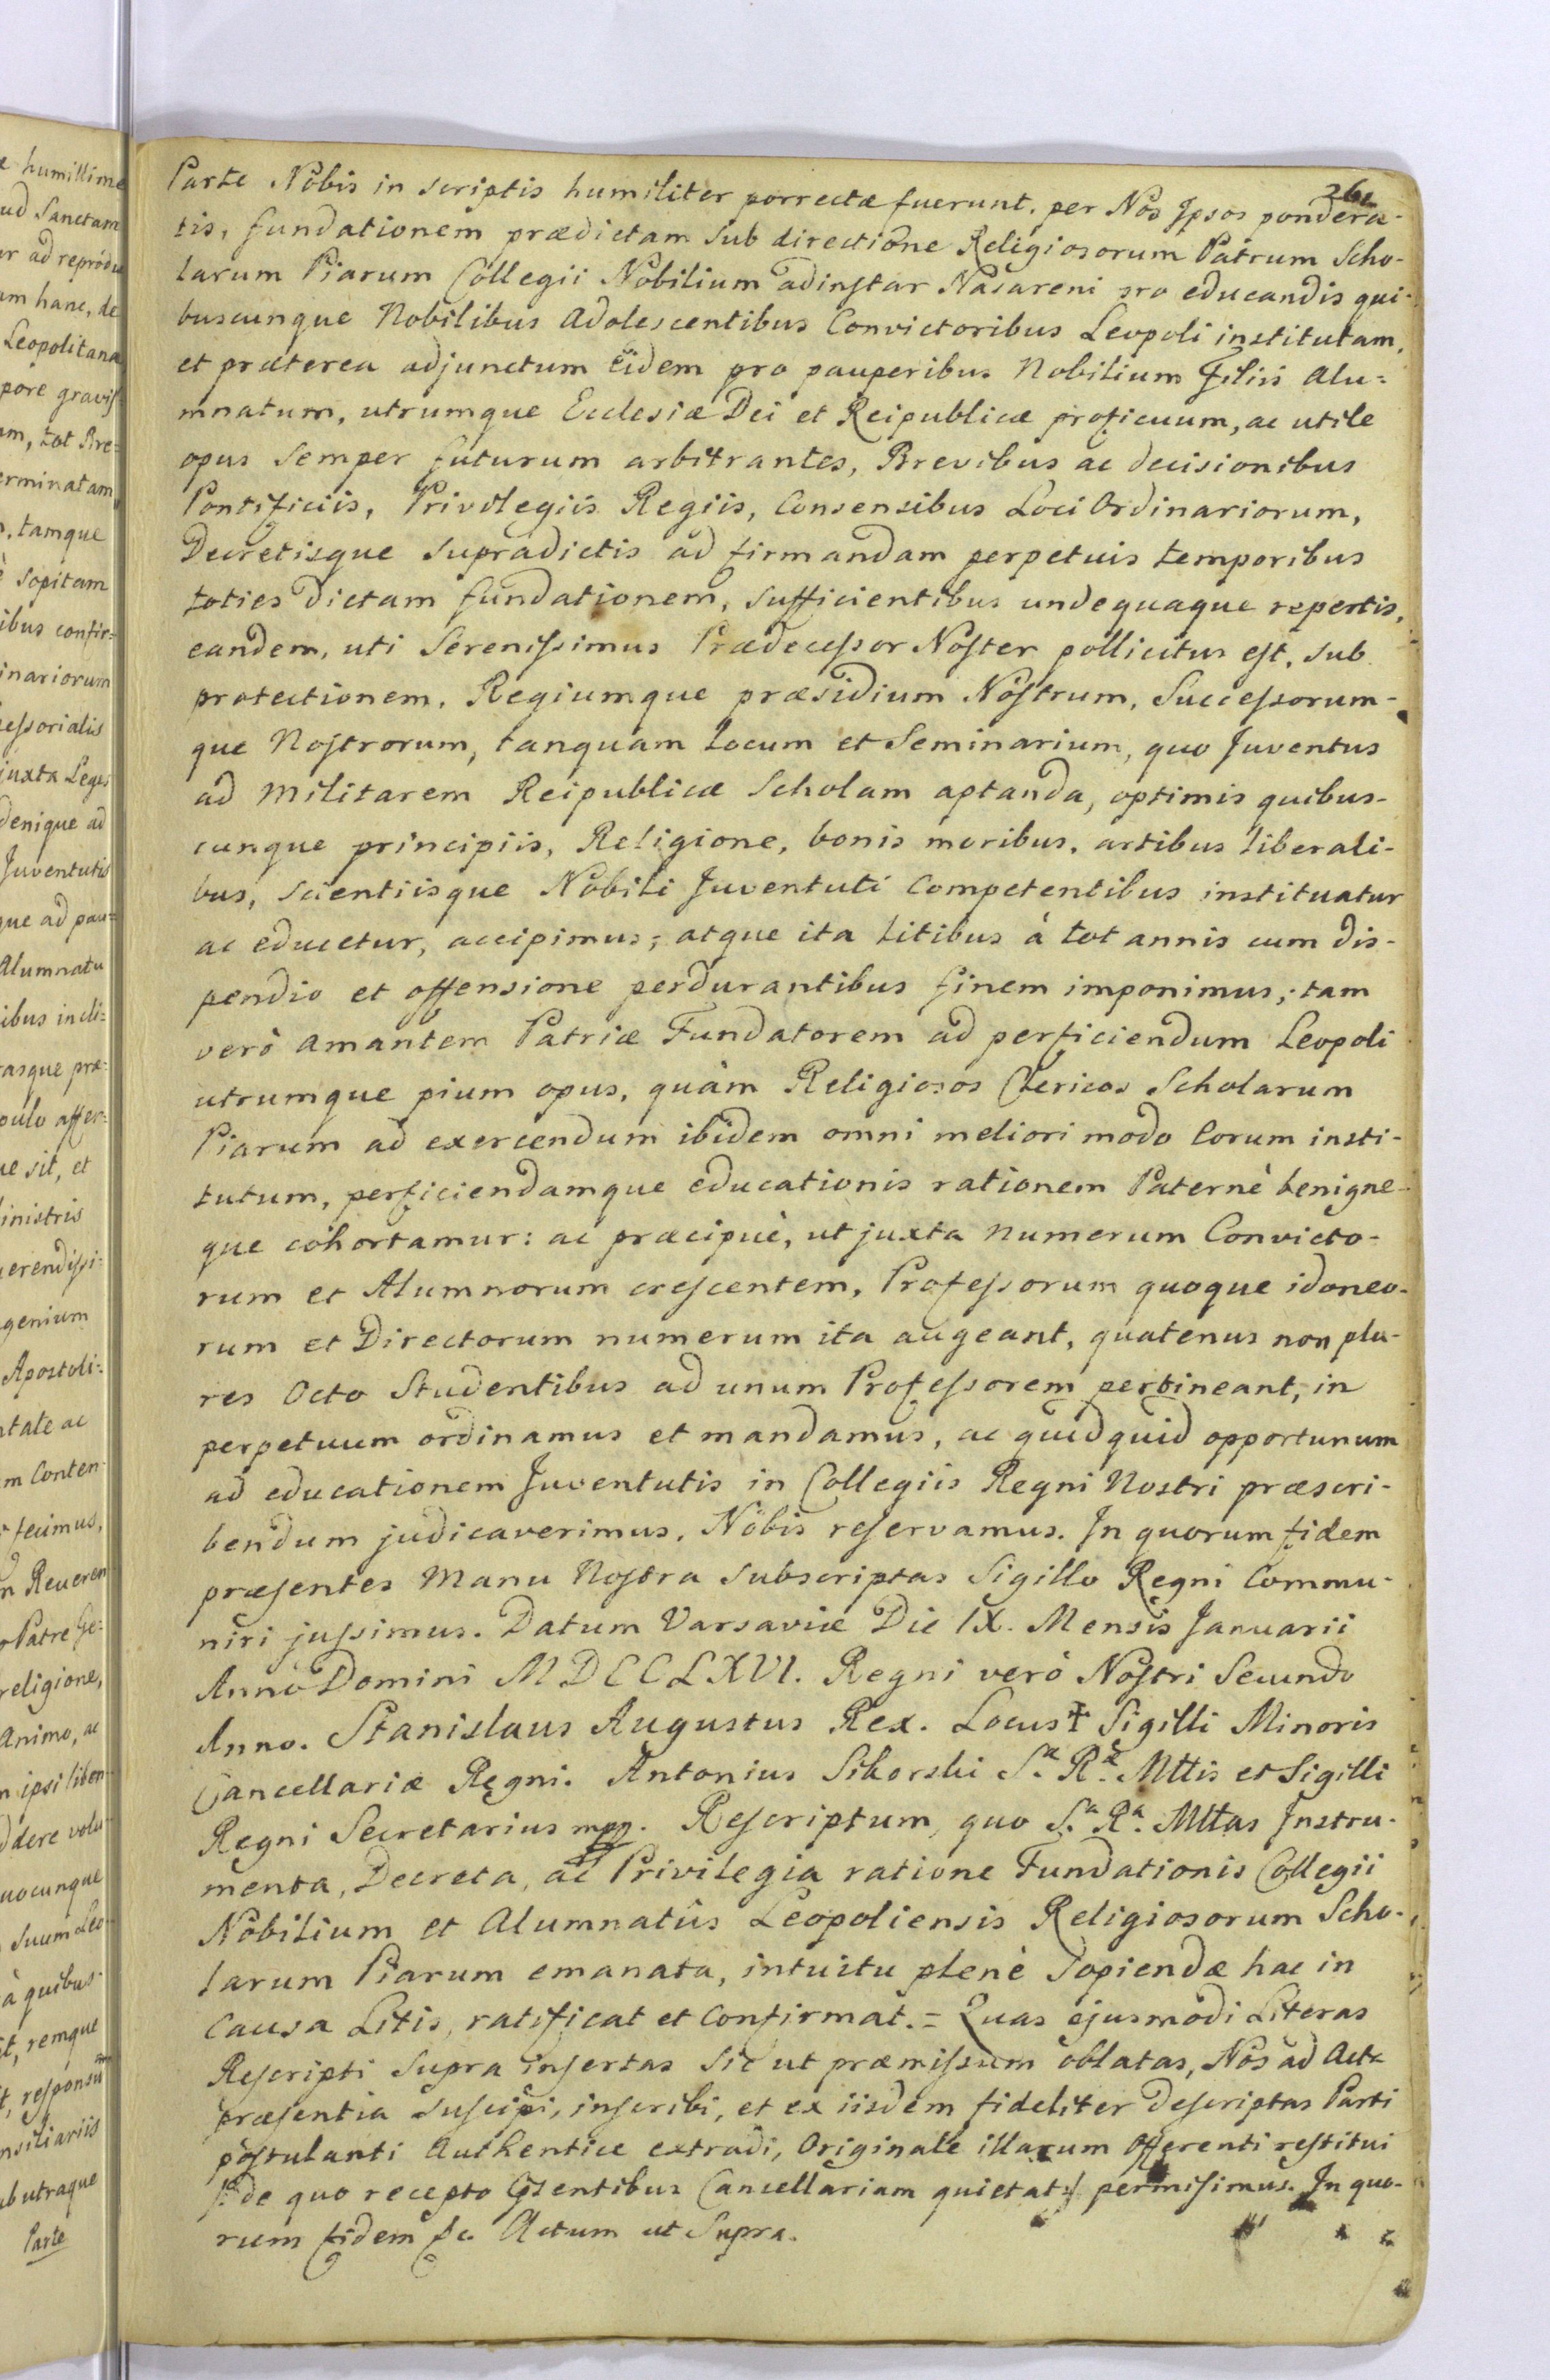 261
Parte Nobis in scriptis humiliter porrectæ fuerunt, per Nos Ipsos pondera-
tis, fundationem prædictam sub directione Religiosorum Patrum Scho-
larum Piarum Collegii Nobilium adinstar Nasareni pro educandis qui-
buscunque Nobilibus Adolescentibus Convictoribus Leopoli institutam,
et præterea adjunctum eidem pro pauperibus Nobilium Filiis Alu=
mnatum, utrumque Ecclesiæ Dei et Reipublicæ proficuum, ac utile
opus semper futurum arbitrantes, Brevibus ac decisionibus
Pontificiis, Privilegiis Regiis, Consensibus Loci Ordinariorum,
Decretisque supradictis ad firmandam perpetuis temporibus
toties dictam fundationem, sufficientibus undequaque repertis,
eandem, uti Serenissimus Prædecessor Noster pollicitus est, sub
protectionem, Regiumque præsidium Nostrum, Successorum-
que Nostrorum, tanquam locum et Seminarium, quo Juventus
ad Militarem Reipublicæ Scholam aptanda, optimis quibus-
cunque principiis, Religione, bonis moribus, artibus liberali-
bus, scientiisque Nobili Juventuti Competentibus instituatur
ac educetur, accipimus; atque ita litibus à tot annis cum dis-
pendio et offensione perdurantibus finem imponimus; tam
verò amantem Patriæ Fundatorem ad perficiendum Leopoli
utrumque pium opus, quàm Religiosos Clericos Scholarum
Piarum ad exercendum ibidem omni meliori modo Eorum insti-
tutum, perficiendamque educationis rationem Paternè benigne-
que cohortamur: ac præcipuè, ut juxta numerum Convicto-
rum et Alumnorum crescentem, Professorum quoque idoneo-
rum et Directorum numerum ita augeant, quatenus non plu-
res Octo Studentibus ad unum Professorem pertineant, in
perpetuum ordinamus et mandamus, ac quidquid opportunum
ad educationem Juventutis in Collegiis Regni Nostri præscri-
bendum judicaverimus, Nobis reservamus. In quorum fidem
præsentes Manu Nostra Subscriptas Sigillo Regni Commu-
niri jussimus. Datum Varsaviæ Die IX. Mensis Januarii
Anno Domini MDCCLXVI. Regni verò Nostri Secundo
Anno. Stanislaus Augustus Rex. Locus ✝ Sigilli Minoris
Cancellariæ Regni. Antonius Sikorski S.æ R.æ Mttis et Sigilli
Regni Secretarius mpp. Rescriptum, quo S.a R.a Mttas Instru-
menta, Decreta, ac Privilegia ratione Fundationis Collegii
Nobilium et Alumnatûs Leopoliensis Religiosorum Scho-
larum Piarum emanata, intuitu plenè Sopiendæ hac in
Causa Litis, ratificat et Confirmat. = Quas ejusmodi Literas
Rescripti supra insertas sic ut præmissum oblatas, Nos ad Acta
præsentia suscipi, inscribi, et ex iisdem fideliter descriptas Parti
postulanti Authentice extradi, Originale illarum Offerenti restitui
/: de quo recepto Gsentibus Cancellariam quietat :/ permisimus. In quo-
rum fidem &c. Actum ut Supra.